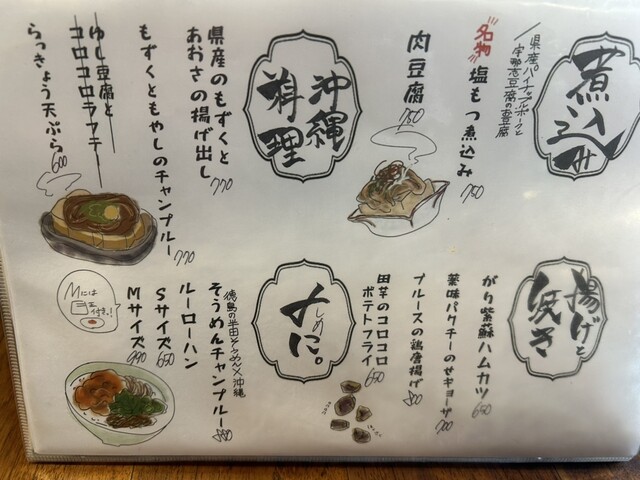 煮込み
県産パイナップルポークと
宇那志豆腐の豆腐
名物 塩もつ煮込み 750
肉豆腐 750
沖縄
料理
県産のもずくと
あおさの揚げ出し 770
もずくともやしのチャンプルー 770
ゆし豆腐と
コロコロラフテー
らっきょう天ぷら 600
揚げと
焼き
がり紫蘇ハムカツ 650
薬味パクチーのせギョーザ 700
ブルースの鶏唐揚げ 800
田芋のコロコロ
ポテトフライ 650
しめ
〆に。
徳島の半田そうめん×沖縄
そうめんチャンプルー
ルーローハン
Sサイズ 650
Mサイズ 990
Mには
付き!